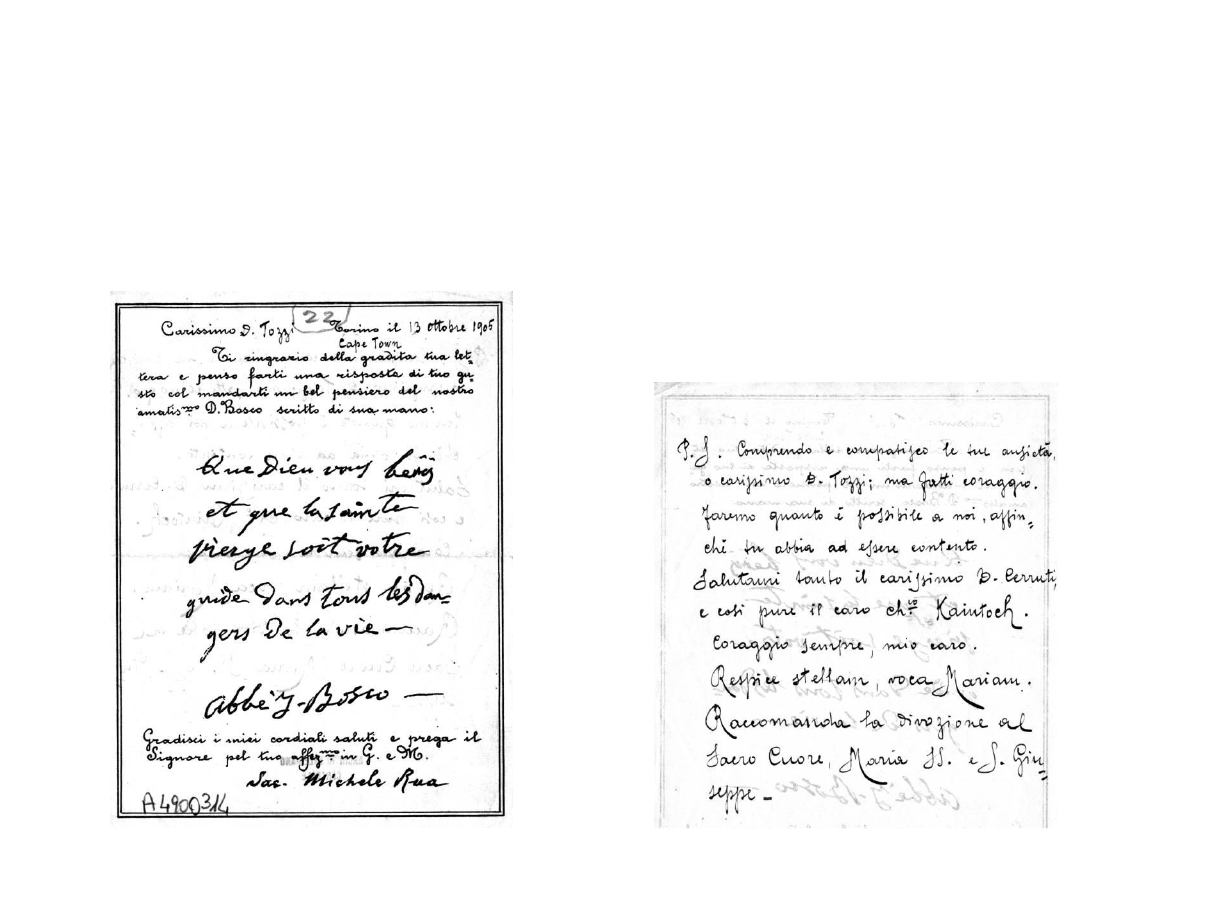 22
Carissimo D. Tozzi Torino il 13 Ottobre 1905
Cape Town
Ti ringrazio della gradita tua let-
tera e penso farti una risposta di tuo gu-
sto col mandarti un bel pensiero del nostro
amatis.mo D. Bosco scritto di sua mano:
Que Dieu vous
et que la sainte
vierge soit votre
guide dans tous les dan-
gers de la vie —
abbé J. Bosco —
Gradisci i miei cordiali saluti e prega il
Signore pel tuo affez.mo in G. e M.
Sac. Michele Rua
A4900314
P.S. Comprendo e compatisco le tue ansietà,
o carissimo D. Tozzi; ma fatti coraggio.
Faremo quanto è possibile a noi, affin-
chè tu abbia ad essere contento.
Salutami tanto il carissimo D. Cerruti,
e così pure il caro ch.co Kaintoch.
Coraggio sempre, mio caro.
Respice stellam, voca Mariam.
Raccomanda la divozione al
Sacro Cuore, Maria SS. e S. Giu-
seppe -